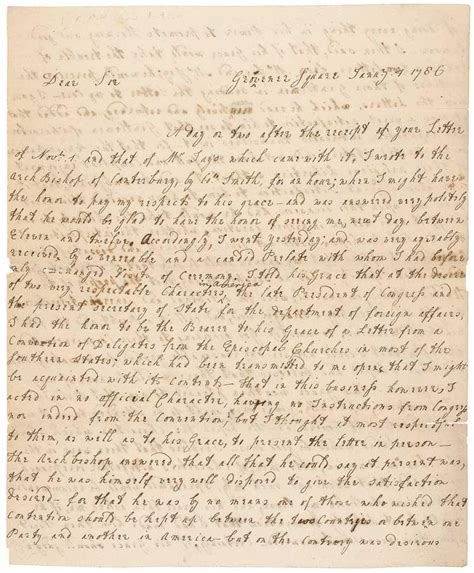 Dear Sir Grovenor Square Janay 4. 1786
A day or two after the receipt of your Letter
of Novr. 1 and that of Mr Jays which came with it, I wrote to the
Arch Bishop of Canterbury, by Col. Smith, for an hour, when I might have
the honor to pay my respects to his grace—and was answered very politely
that he would be glad to have the honor of seeing me, next day, between
Eleven and twelve. Accordingly, I went yesterday; and was very agreably
received by a venerable and a candid Prelate with whom I had before
only exchanged Visits of Ceremony. I told his Grace that at the desire
in America
of two very respectable Characters, the late President of Congress and
the present Secretary of State for the department of foreign affairs,
I had the honor to be the Bearer to his Grace of a Letter from a
Convention of Delegates from the Episcopal Churches in most of the
Southern States; which had been transmitted to me open that I might
be acquainted with its Contents—that in this business however, I
acted in no official Character, having no Instructions from Congress
nor indeed from the Convention; but I thought it most respectful
to them, as well as to his Grace, to present the letter in person—
The Archbishop answered, that all that he could say at present was,
that he was himself very well disposed to give the satisfaction
desired—for that he was by no means one of those who wished that
Contention should be kept up between the two Countries or between one
Party and another in America—but on the Contrary was desirous